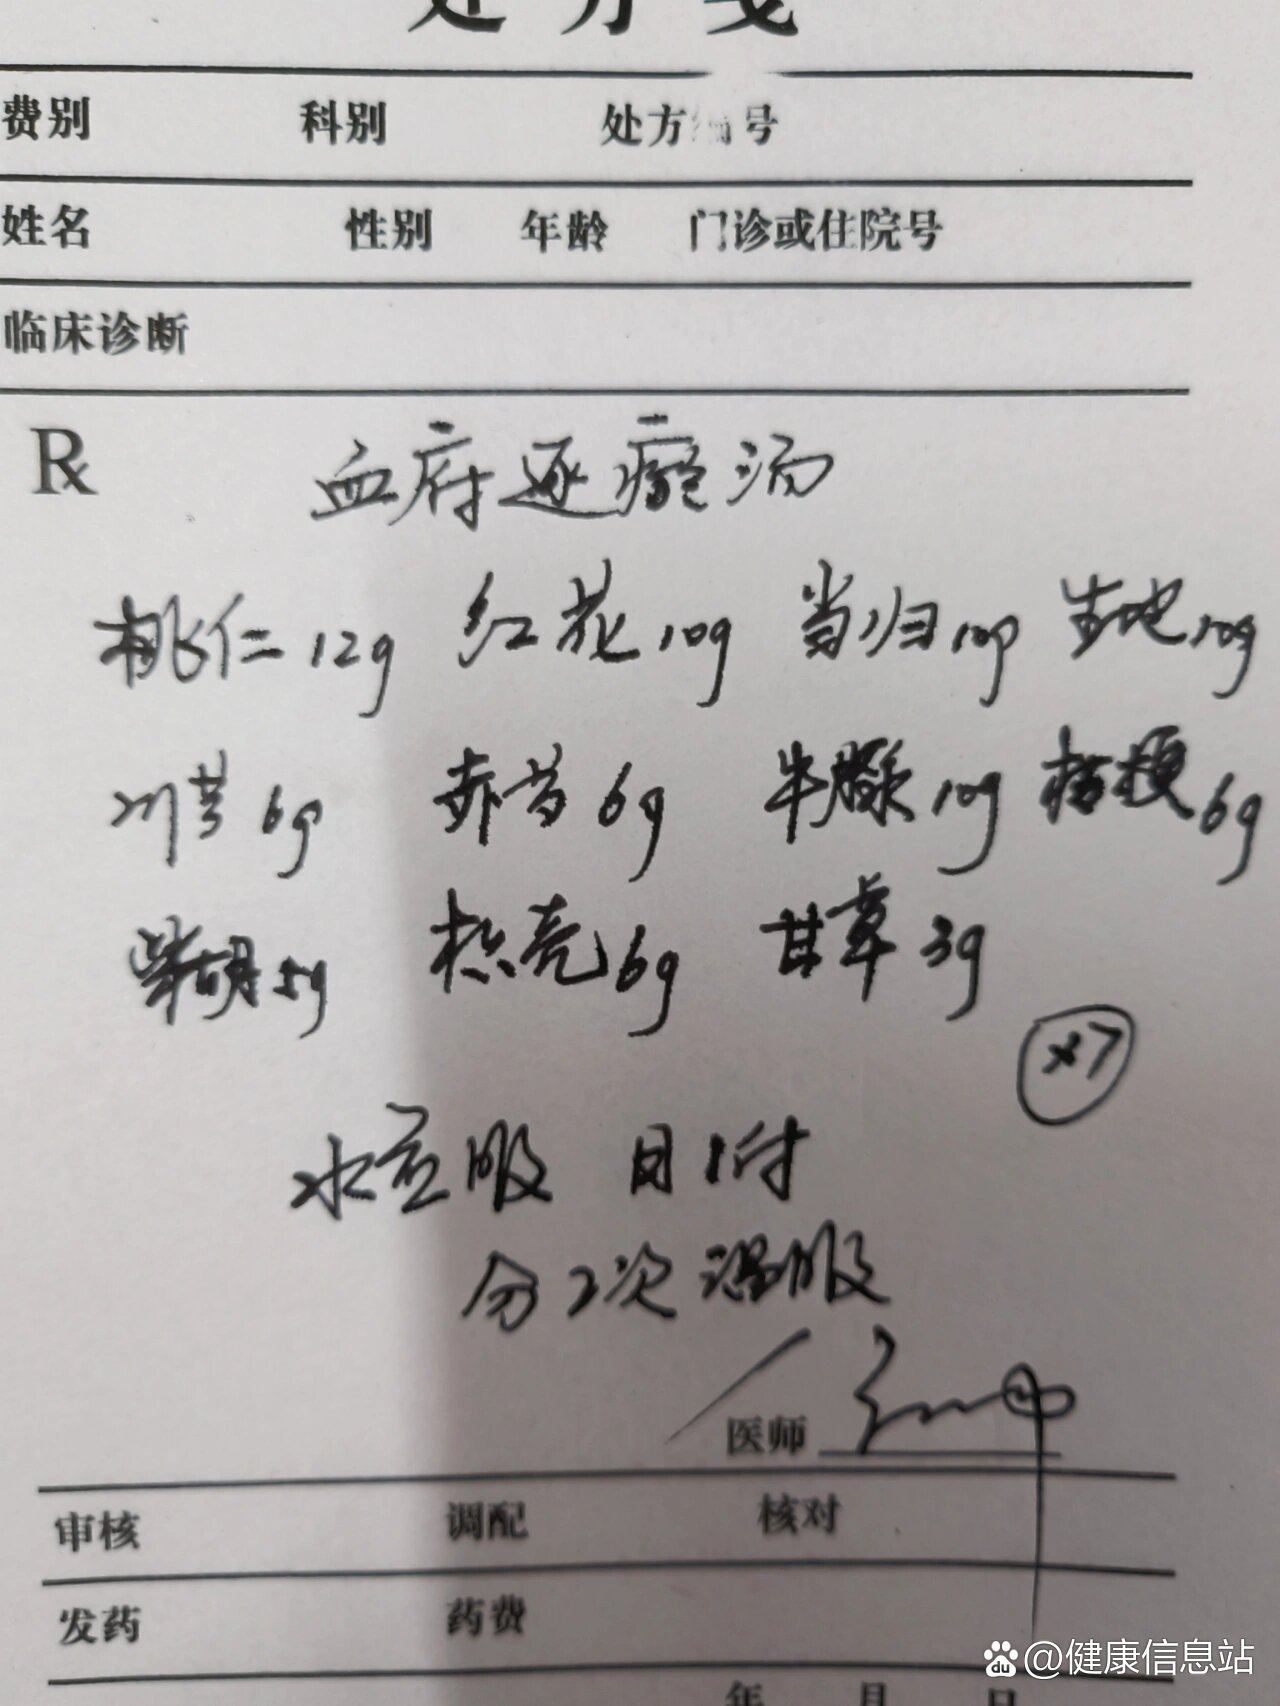 处方笺
费别 科别 处方编号
姓名 性别 年龄 门诊或住院号
临床诊断
Rx 血府逐瘀汤
桃仁12g 红花10g 当归10g 生地10g
川芎6g 赤芍6g 牛膝10g 桔梗6g
柴胡5g 枳壳6g 甘草3g
×7
水煎服 日1付
分2次温服
医师
审核 调配 核对
发药 药费
年 月 日
du @健康信息站